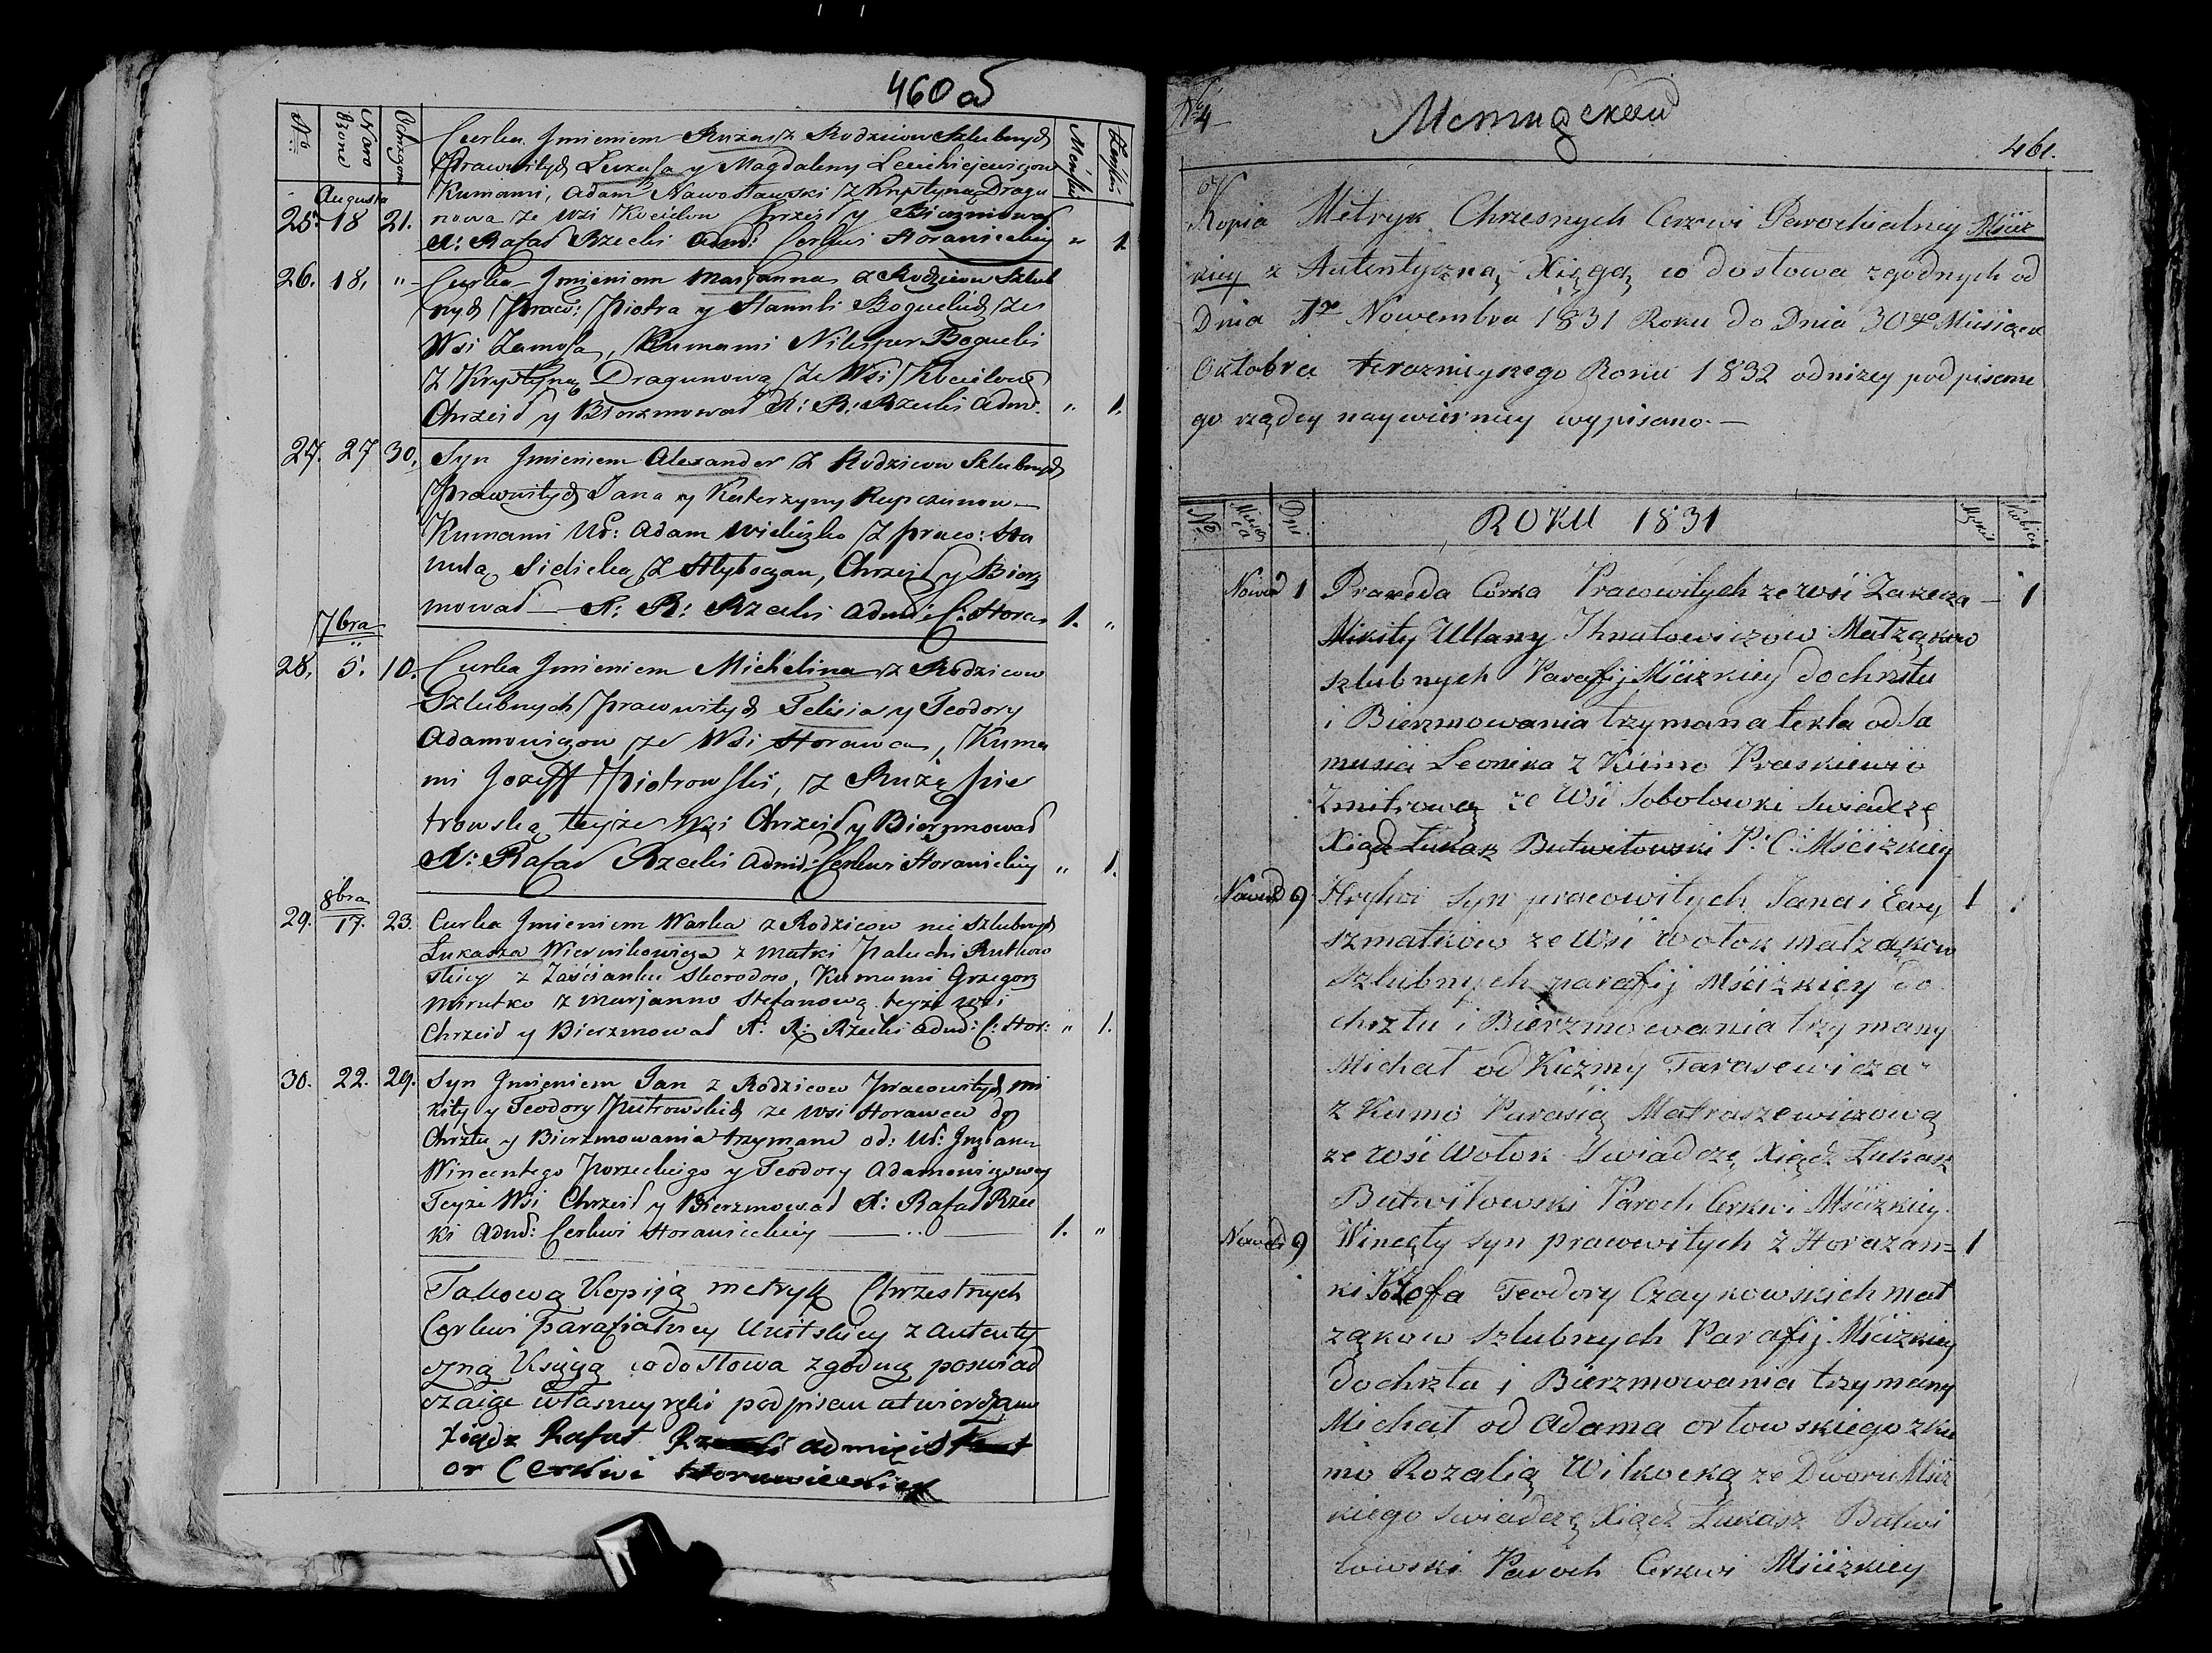 460 об
№ Naro dzone Ochrzczon Męskie Żeńskie
Augusta
25. 18 21. Curka Jmieniem Ruża z Rodzicow Szlubnych
Pracowitych Łukasza y Magdaleny
Kumami, Adam Nawosławski z Krystyną Dragu
nowa ze Wsi Chrzcił y Bierzmował
X: Rafał Rzecki Admi: Cerkwi Horawieckiey " 1.
26. 18. " Curka Jmieniem Marjanna z Rodzicow Szlub
nych Pracow: Piotra y Hannli Boguckich ze
Wsi Zamosza, Kumami Nikiper Bogucki
z Krystyną Dragunową ze Wsi
Chrzcił y Bierzmował X: R: Rzecki Admi. " 1.
27. 27 30. Syn Jmieniem Alexander z Rodzicow Szlubnych
Pracowitych Jana y Katerzyny Rupczunow
Kumami Ur: Adam Wieliczko z praco: Ha
nulą z Hłyboczan, Chrzcił y Bierz
mował X: R: Rzecki Admi: C: Horaw 1. "
7bra
28. 5. 10. Curka Jmieniem Michelina z Rodzicow
Szlubnych Pracowitych Felisia y Teodory
Adamowiczow ze Wsi Horawca, Kuma
mi Jozeff Piotrowski, z Rużą Pie
trowską teyże Wsi Chrzcił y Bierzmował
X: Rafał Rzecki Admi: Cerkwi Horawieckiey " 1.
8bra
29. 17. 23. Curka Jmieniem Warka z Rodzicow nie Szlubnych
Łukasza Wiernikowicza z matki Paluchi Rutkow
skiey z Zaścianku Skorodno, Kumami Grzegorz
Mirutko z Marjanno Stefanową teyże wsi
Chrzcił y Bierzmował X: R: Rzecki Admi: C: Hor: " 1.
30. 22. 29. Syn Jmieniem Jan z Rodzicow Pracowitych Mi
kity y Teodory Piotrowskich ze wsi Horawca do
Chrztu y Bierzmowania trzymany od: Ur:
Wincentego Porzeckiego y Teodory Adamowiczowey
Teyże Wsi Chrzcił y Bierzmował X: Rafał Rzec
ki Admi: Cerkwi Horawieckiey 1. "
Takową Kopiją metryk Chrzestnych
Cerkwi Parafialney Unitskiey z autenty
czną Księgą co do słowa zgodną poswiad
czaiąc własney ręki podpisem utwierdzam
Xiądz Rafał Rzecki administrat
or Cerkwi Horawieckiey
№ 4
Мстижской
461.
Kopia Metryk Chrzesnych Cerkwi Parochialney Mściż
kiey z Autentyczną Xięgą co do słowa zgodnych od
Dnia 1go Nowembra 1831 Roku do Dnia 30go Miesiąca
Oktobra teraznieyszego Roku 1832 od niżey podpisane
go rządcy naywierniey wypisano.—
№ Miesiąca Dni ROKU 1831 Męskie Kobiece
Nowemb 1 Praxeda Córka Pracowitych ze wsi Zarecza — 1
Mikity Ullany Ihnatowiczow Małżąkow
szlubnych Parafij Mściżkiey do chrstu
i Bierzmowania trzymana tekla od Ja
musia Leonika z Kumo Praskiewio
Zmitrową ze Wsi Sobolowki Swiadczę
Xiądz Łukasz Butwiłowski P: C: Mściżkiey
Nowemb 9 Hryhor syn pracowitych Jana i Ewy 1
szmatkow ze Wsi Wołok małżąkow
szlubnych parafij Mściżkiey do
chrztu i Bierzmowania trzymany
Michał od Kuzmy Tarasewicza
z Kumo Parasią Matraszewiczową
ze wsi Wołok Swiadczę Xiądz Łukasz
Butwiłowski Paroch Cerkwi Mściżkiey.
Nowemb 9 Winęęty syn pracowitych z Horazan= 1
ki Jozefa Teodory Czaykowskich mał
żąkow szlubnych Parafij Mściżkiey
do chrztu i Bierzmowania trzymany
Michał od Adama Orłowskiego z ku
mo Rozalią Wilkocką ze Dworu Mściż
kiego Swiadczę Xiądz Łukasz Butwi
łowski Paroch Cerkwi Mściżkiey